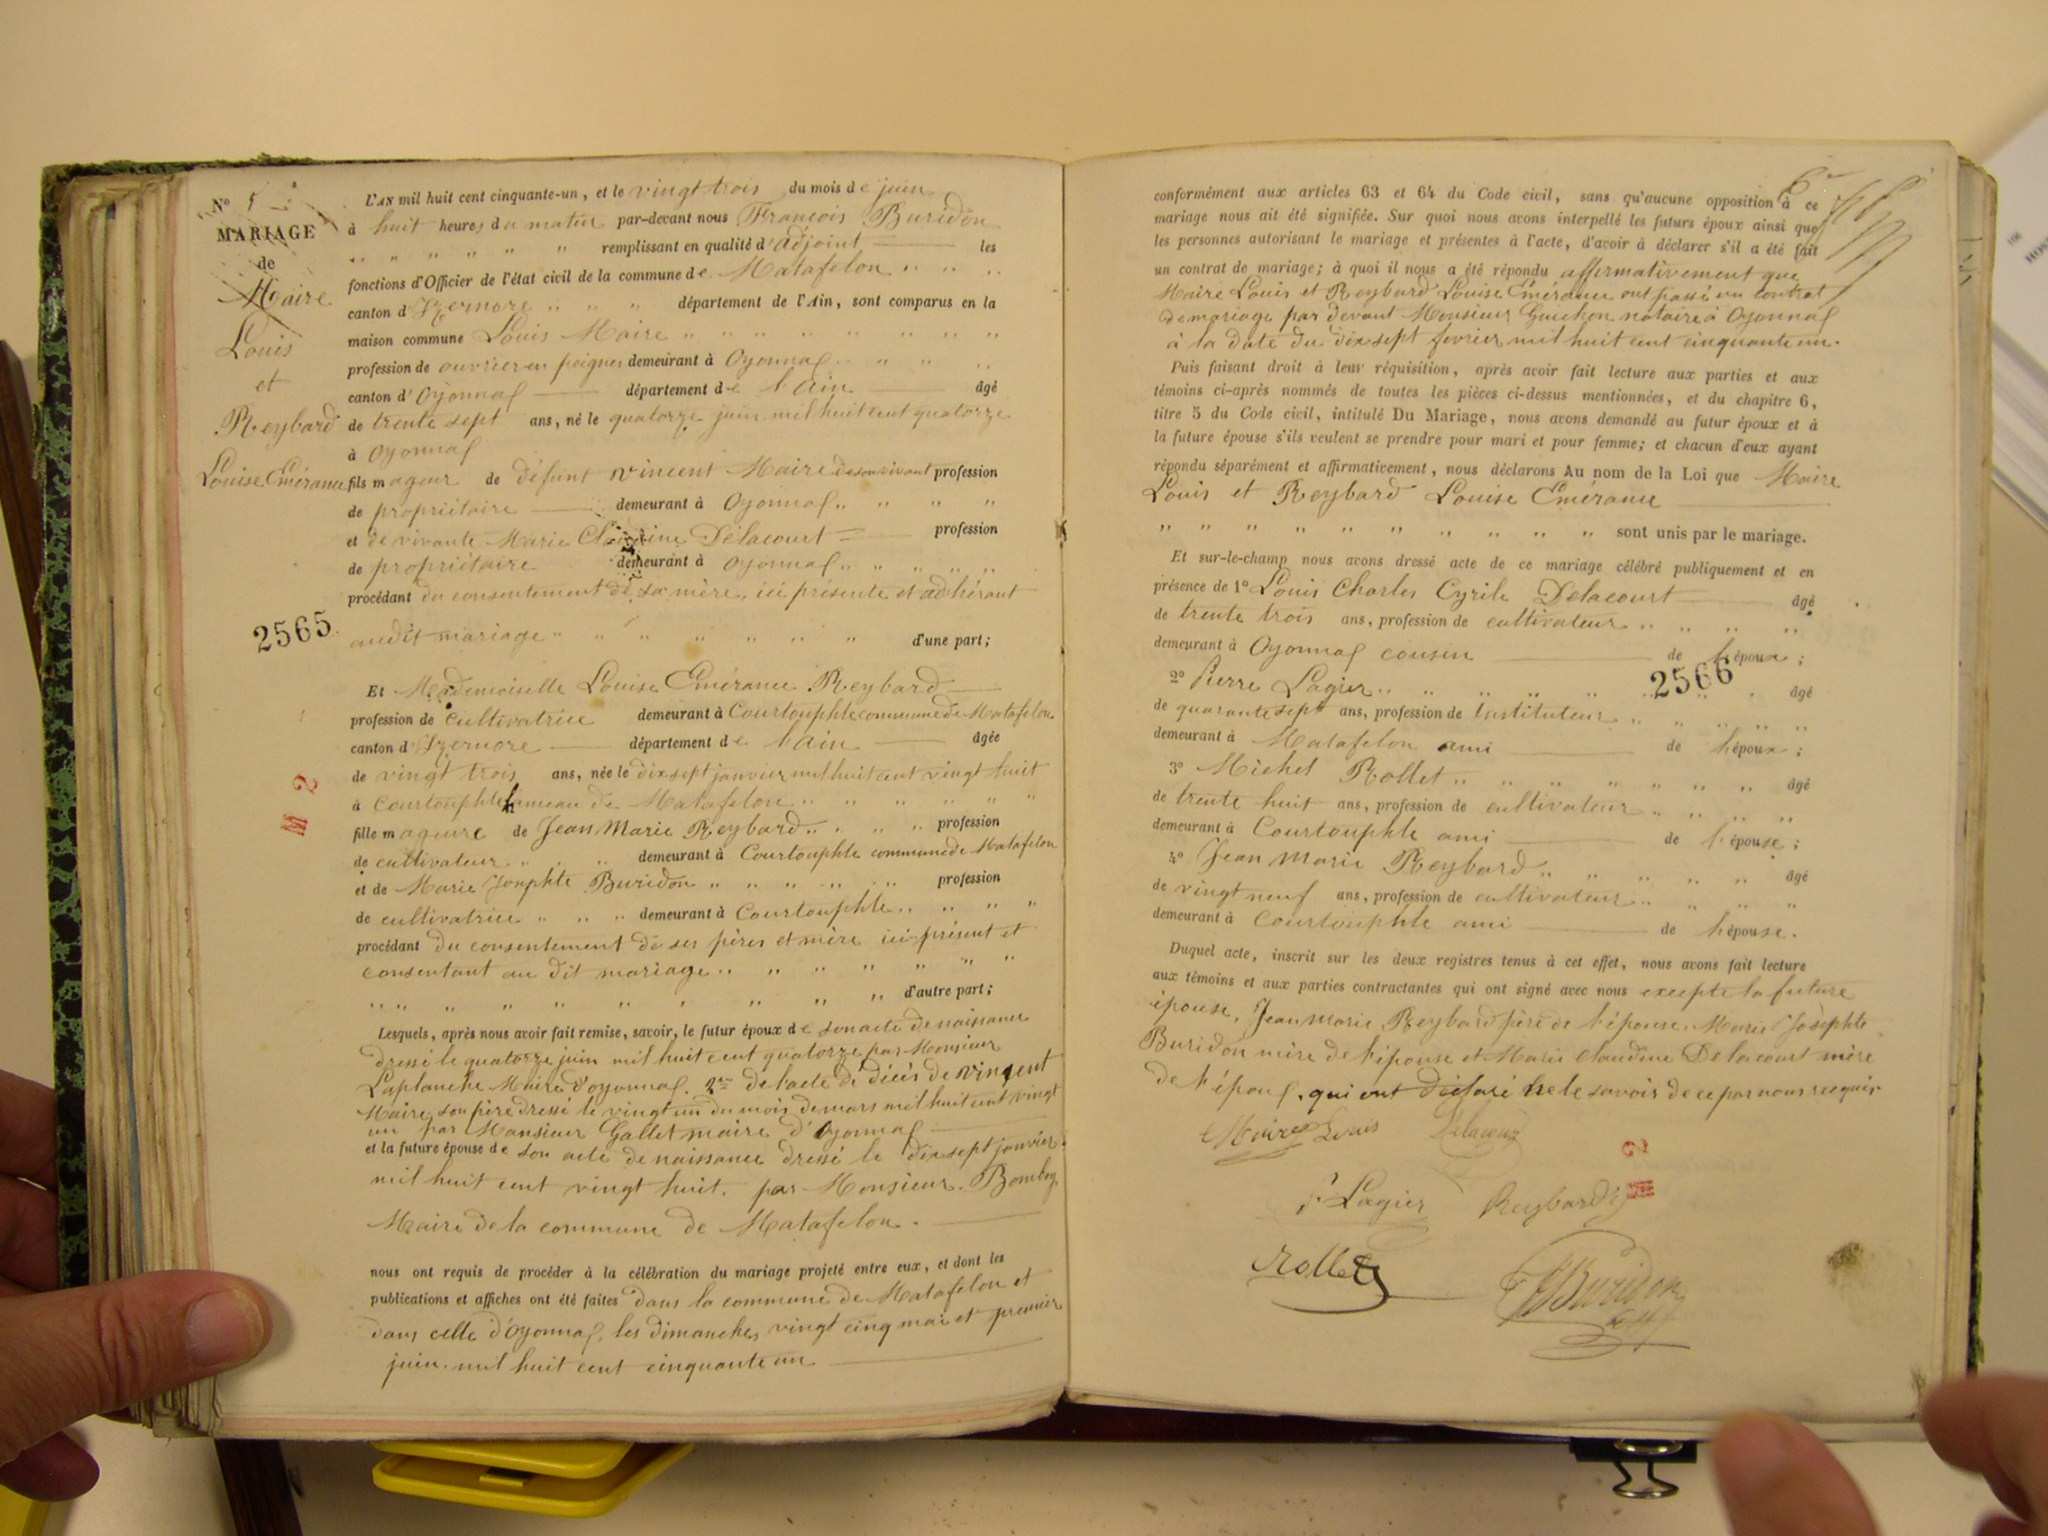 N° 5
MARIAGE
de
Maire
Louis
et
Reybard
Louise Emérance
2565
M 2
L'AN mil huit cent cinquante-un, et le vingt trois du mois de juin
à huit heures du matin par-devant nous François Buridon
remplissant en qualité d'adjoint les
fonctions d'Officier de l'état civil de la commune de Matafelon
canton d'Izernore département de l'Ain, sont comparus en la
maison commune Louis Maire
profession de ouvrier en peignes demeurant à Oyonnax
canton d'Oyonnax département de l'ain âgé
de trente sept ans, né le quatorze juin mil huit cent quatorze
à Oyonnax
fils mageur de défunt vincent Maire de son vivant profession
de propriétaire demeurant à Oyonnax
et de vivante Marie Claudine Delacourt profession
de propriétaire demeurant à Oyonnax
procédant du consentement de sa mère, ici présente et adhérant
audit mariage d'une part;
Et Mademoiselle Louise Emérance Reybard
profession de cultivatrice demeurant à Courtouphle commune de Matafelon
canton d'Izernore département de l'ain âgée
de vingt trois ans, née le dix sept janvier mil huit cent vingt huit
à Courtouphle hameau de Matafelon
fille mageure de Jean Marie Reybard profession
de cultivateur demeurant à Courtouphle commune de Matafelon
et de Marie Josephte Buridon profession
de cultivatrice demeurant à Courtouphle
procédant du consentement de ses pères et mère ici présent et
consentant au dit mariage
d'autre part;
Lesquels, après nous avoir fait remise, savoir, le futur époux de son acte de naissance
dressé le quatorze juin mil huit cent quatorze par Monsieur
Laplanche Maire d'oyonnax. 2me de l'acte de décès de vincent
Maire son père dressé le vingt un du mois de mars mil huit cent vingt
un par Monsieur Gallet maire d'Oyonnax
et la future épouse de son acte de naissance dressé le dix sept janvier
mil huit cent vingt huit. par Monsieur
Maire de la commune de Matafelon.
nous ont requis de procéder à la célébration du mariage projeté entre eux, et dont les
publications et affiches ont été faites dans la commune de Matafelon et
dans celle d'Oyonnax, les dimanches vingt cinq mai et premier
juin mil huit cent cinquante un
conformément aux articles 63 et 64 du Code civil, sans qu'aucune opposition à ce
mariage nous ait été signifiée. Sur quoi nous avons interpellé les futurs époux ainsi que
les personnes autorisant le mariage et présentes à l'acte, d'avoir à déclarer s'il a été fait
un contrat de mariage; à quoi il nous a été répondu affirmativement que
Maire Louis et Reybard Louise Emérance ont passé un contrat
de mariage par devant Monsieur notaire à Oyonnax
à la date du dix sept fevrier mil huit cent cinquante un.
Puis faisant droit à leur réquisition, après avoir fait lecture aux parties et aux
témoins ci-après nommés de toutes les pièces ci-dessus mentionnées, et du chapitre 6,
titre 5 du Code civil, intitulé Du Mariage, nous avons demandé au futur époux et à
la future épouse s'ils veulent se prendre pour mari et pour femme; et chacun d'eux ayant
répondu séparément et affirmativement, nous déclarons Au nom de la Loi que Maire
Louis et Reybard Louise Emérance
sont unis par le mariage.
Et sur-le-champ nous avons dressé acte de ce mariage célébré publiquement et en
présence de 1° Louis Charles Cyrile Delacourt âgé
de trente trois ans, profession de cultivateur
demeurant à Oyonnax cousin de l'époux;
2566
2° Pierre Lagier âgé
de quarante sept ans, profession de Instituteur
demeurant à Matafelon ami de l'époux;
3° Michel Rollet âgé
de trente huit ans, profession de cultivateur
demeurant à Courtouphle ami de l'épouse;
4° Jean Marie Reybard âgé
de vingt neuf ans, profession de cultivateur
demeurant à Courtouphle ami de l'épouse.
Duquel acte, inscrit sur les deux registres tenus à cet effet, nous avons fait lecture
aux témoins et aux parties contractantes qui ont signé avec nous excepté la future
épouse, Jean Marie Reybard père de l'épouse, Marie Josephte
Buridon mère de l'épouse et Marie Claudine Delacourt mère
de l'époux, qui ont déclaré ne le savoir de ce par nous requis
Maire Louis Delacour
P Lagier Reybard
Rollet
Buridon
M 2